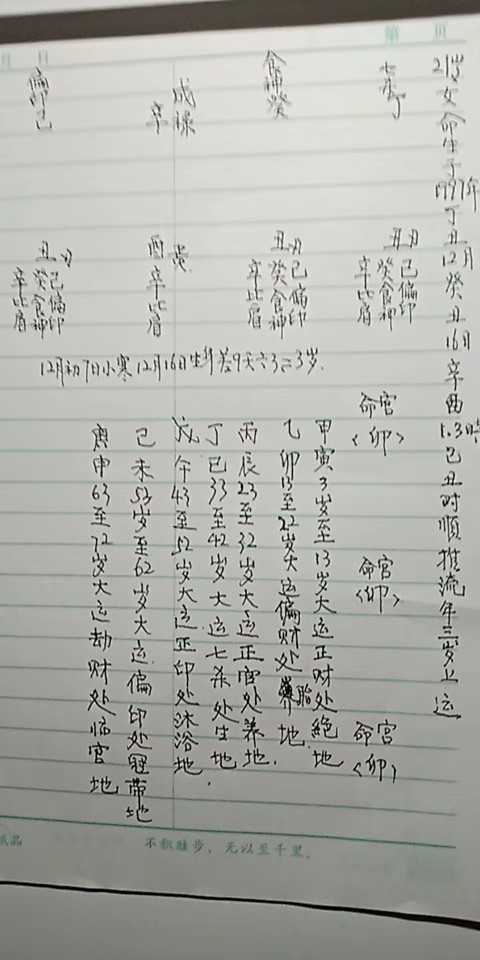 第 页
月 日
21岁女命生于1997年丁丑12月癸丑16日辛酉1.3時己丑时顺推流年三岁上运
七杀丁
食神癸
辛
偏印己
丑
己偏印
癸食神
辛比肩
丑
己偏印
癸食神
辛比肩
酉
辛比肩
丑
己偏印
癸食神
辛比肩
12月初7日小寒12月16日生
3岁.
命宫
<卯>
命宫
<卯>
命宫
<卯>
甲寅3岁至13岁大运正财处絕地
乙卯13至22岁大运偏财处胎地.
丙辰23至32岁大运正官处养地.
丁巳33至42岁大运七杀处生地.
戊午43至52岁大运正印处沐浴地
己未53岁至62岁大运偏印处冠带地
庚申63至72岁大运劫财处临官地
纸品
不积跬步，无以至千里.